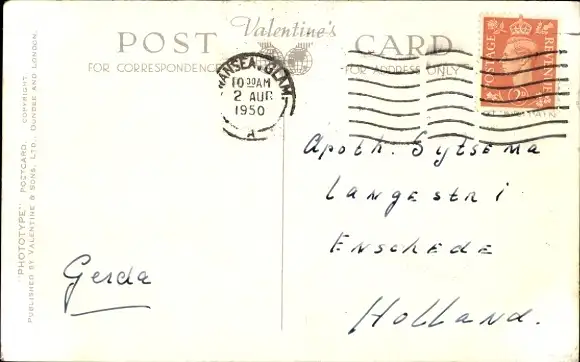 Valentine's
POST CARD
FOR CORRESPONDENCE
FOR ADDRESS ONLY
"PHOTOTYPE" POSTCARD. COPYRIGHT.
PUBLISHED BY VALENTINE & SONS, LTD., DUNDEE AND LONDON.
SWANSEA, GLAM
10 30 AM
2 AUG
1950
A
POSTAGE REVENUE
Apoth. Sytsema
Langestr 1
Enschede
Holland.
Gerda